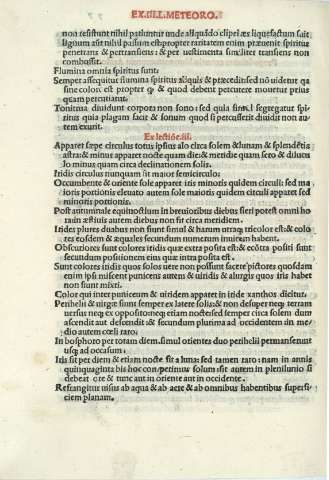 EX .IIII. METEORO.
non resistunt nihil patiuntur unde aliquādo clipei æs liquefactum fuit
lignum aūt nihil passum est propter raritatem enim præuenit spiritus
penetrans & pertransiens: & per uestimenta similiter transiens non
combussit.
Flumina omnia spiritus sunt:
Semper assequitur flumina spiritus aliquis & præcedit sed nō uidetur qa
sine colore est propter qđ & quod debent percutere mouetur prius
quam percutiant.
Tonitrua diuidunt corpora non sono: sed quia simul segregatur spi-
ritus quia plagam facit & sonum quod si percusserit diuidit non au-
tem exurit.
Ex lectiōe .iii.
Apparet sæpe circulus totus ipsius alo circa solem & lunam & splendētia
astra: & minus apparet nocte quam die: & meridie quam sero & dilucu
lo minus quam circa declinationem solis.
Iridis circulus nunquam fit maior semicirculo:
Occumbente & oriente sole apparet iris minoris quidem circuli: sed ma
ioris portionis eleuato autem sole maioris quidem circuli apparet sed
minoris portionis.
Post autumnale equinoctium in breuioribus diebus fieri potest omni ho
ra in æstiuis autem diebus non fit circa meridiem.
Irides plures duabus non fiunt simul & harum utraq; tricolor est: & colo
res eosdem & æquales secundum numerum inuicem habent.
Obscuriores sunt colores iridis quæ extra posita est: & ecōtra positi sunt
secundum positionem eius quæ intra posita est.
Sunt colores iridis quos solos uere non possunt facere pictores quosdam
enim ipsi miscent puniceus autem & uiridis & alurgus quos iris habet
non sunt mixti.
Color qui inter puniceum & uiridem apparet in iride xanthos dicitur.
Perihelii & uirgæ fiunt semper ex latere solis: & non desuper neq; terram
uersus neq; ex opposito: neq; etiam nocte sed semper circa solem dum
ascendit aut descendit: & secundum plurima ad occidentem in me-
dio autem cœli raro:
In bosphoro per totam diem simul orientes duo perihelii permanserunt
usq; ad occasum.
Iris fit per diem & etiam nocte fit a luna: sed tamen raro: nam in annis
quinquaginta bis hoc contigit: nam solum fit autem in plenilunio si
debeat ore & tunc aut in oriente aut in occidente.
Refrangitur uisus ab aqua & ab aere & ab omnibus habentibus superfi-
ciem planam.